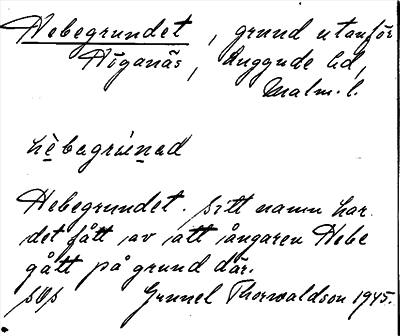 Hebegrundet, grund utanför
Höganäs, Luggude hd,
Malm. l.
hèbagrúnəd
Hebegrundet. Sitt namn har
det fått av att ångaren Hebe
gått på grund där.
Gunnel Thorwaldson 1945.